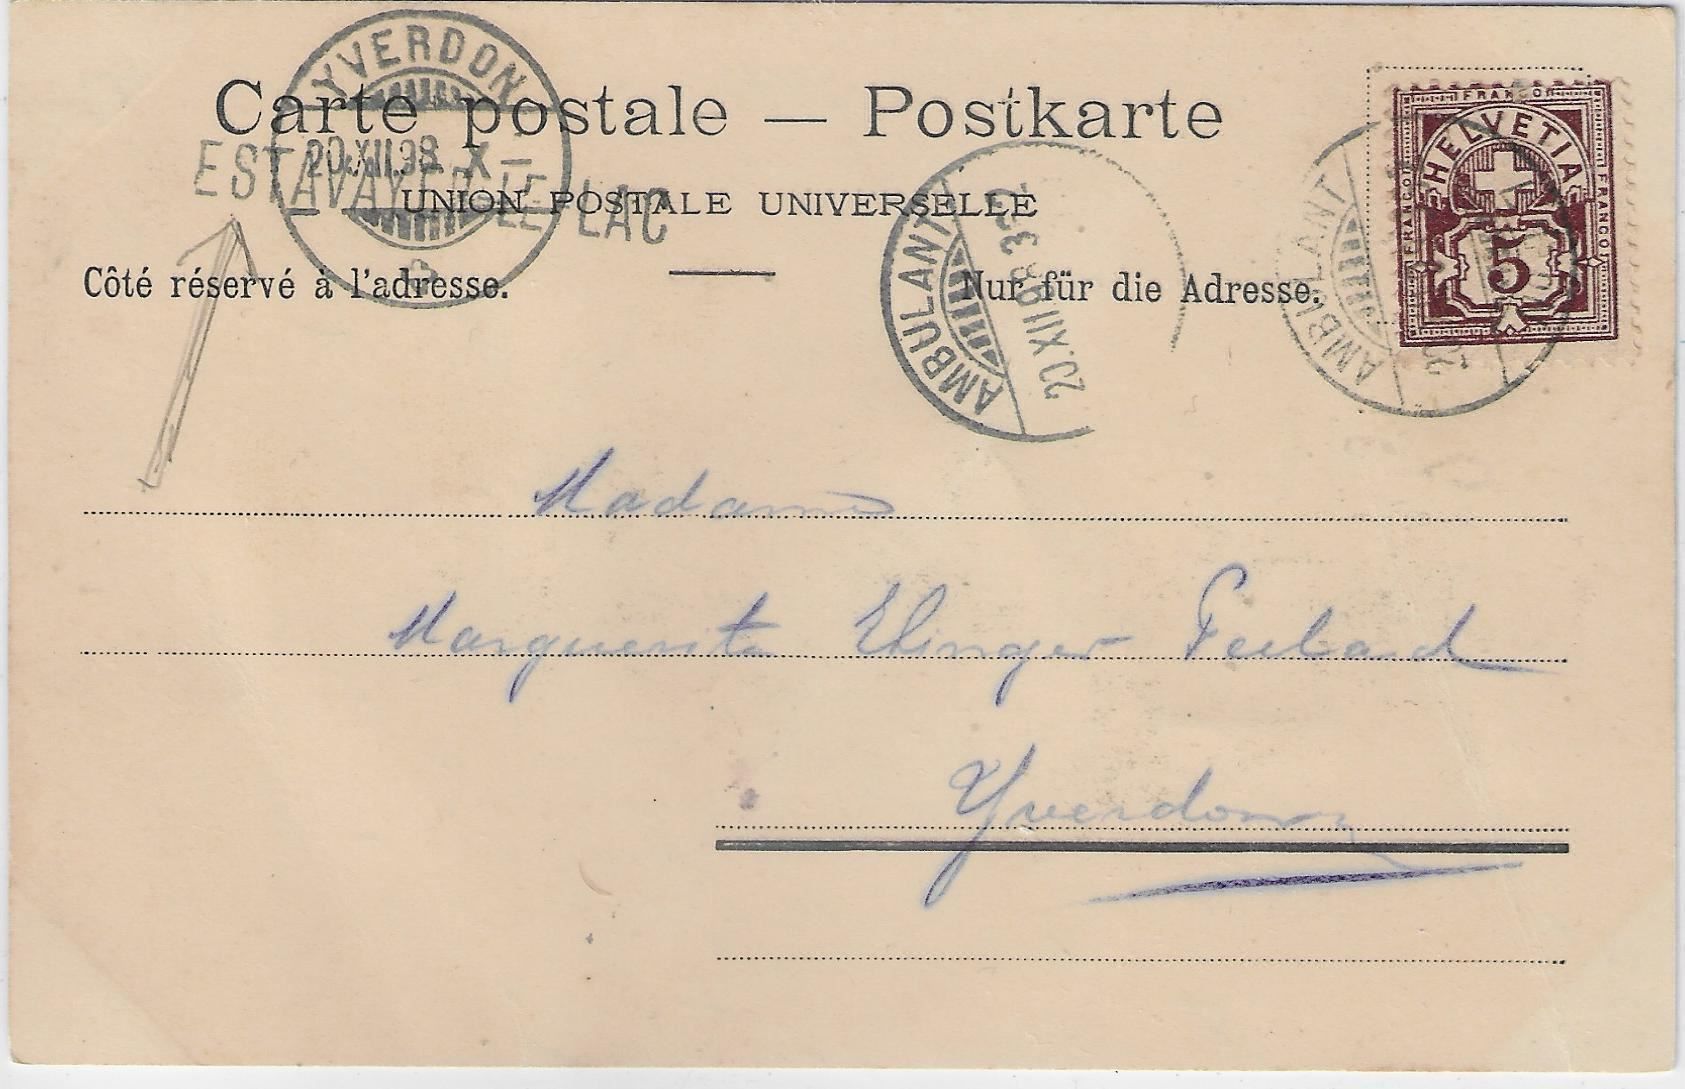 YVERDON
Carte postale — Postkarte
20.XII.98. X–
ESTAVAYER-LE-LAC
UNION POSTALE UNIVERSELLE
Côté réservé à l'adresse.
Nur für die Adresse.
AMBULANT
20.XII.98
AMBULANT
FRANCO
HELVETIA
FRANCO
FRANCO
5
Madame
Marguerite Ehinger
Yverdon